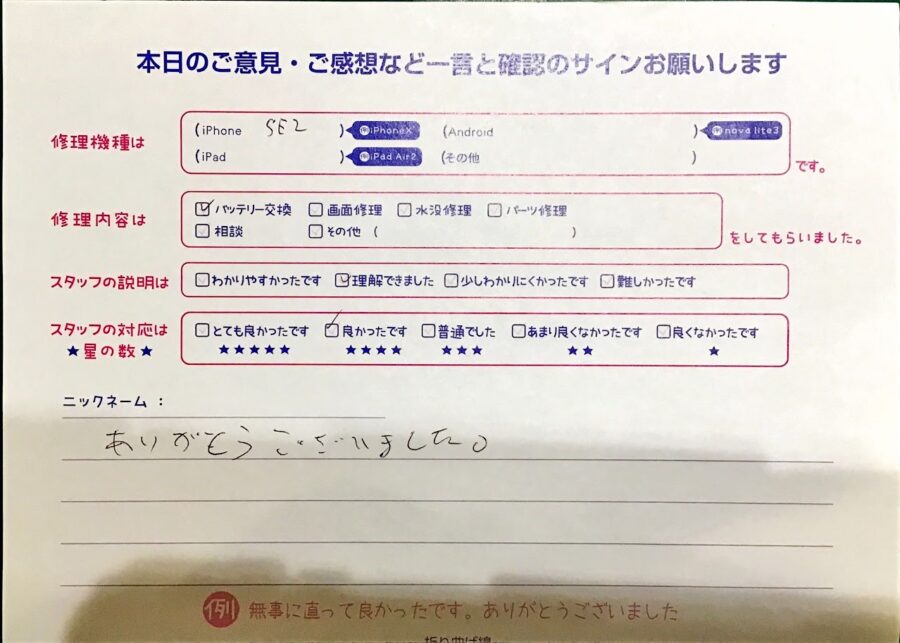 本日のご意見・ご感想など一言と確認のサインお願いします
修理機種は (iPhone SE2 ) 例iPhoneX (Android ) 例nova lite3
(iPad ) 例iPad Air2 (その他 ) です。
修理内容は ☑バッテリー交換 □画面修理 □水没修理 □パーツ修理
□相談 □その他 ( ) をしてもらいました。
スタッフの説明は □わかりやすかったです ☑理解できました □少しわかりにくかったです □難しかったです
スタッフの対応は □とても良かったです ☑良かったです □普通でした □あまり良くなかったです □良くなかったです
★星の数★ ★★★★★ ★★★★ ★★★ ★★ ★
ニックネーム :
ありがとうございました。
例 無事に直って良かったです。ありがとうございました
折り曲げ線